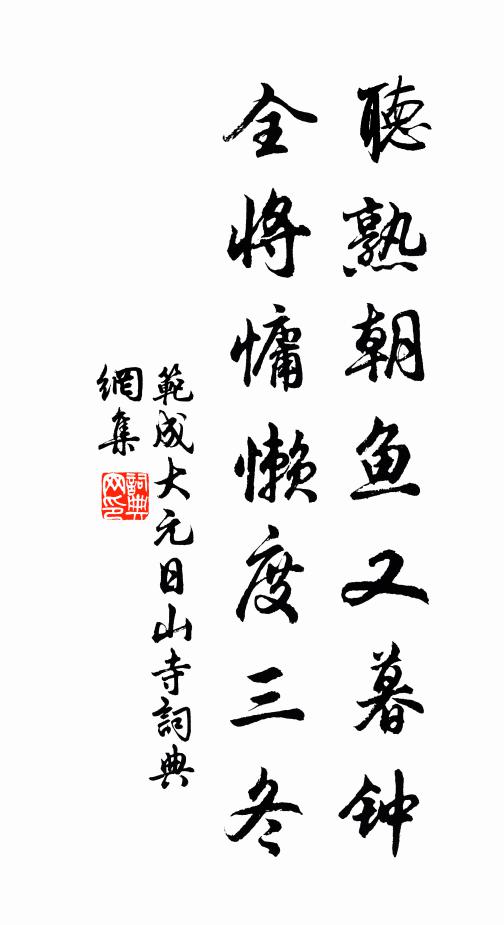 聽熟朝鱼又暮钟
全将慵懒度三冬
範成大元日山寺詞典
網集
詞典
网印